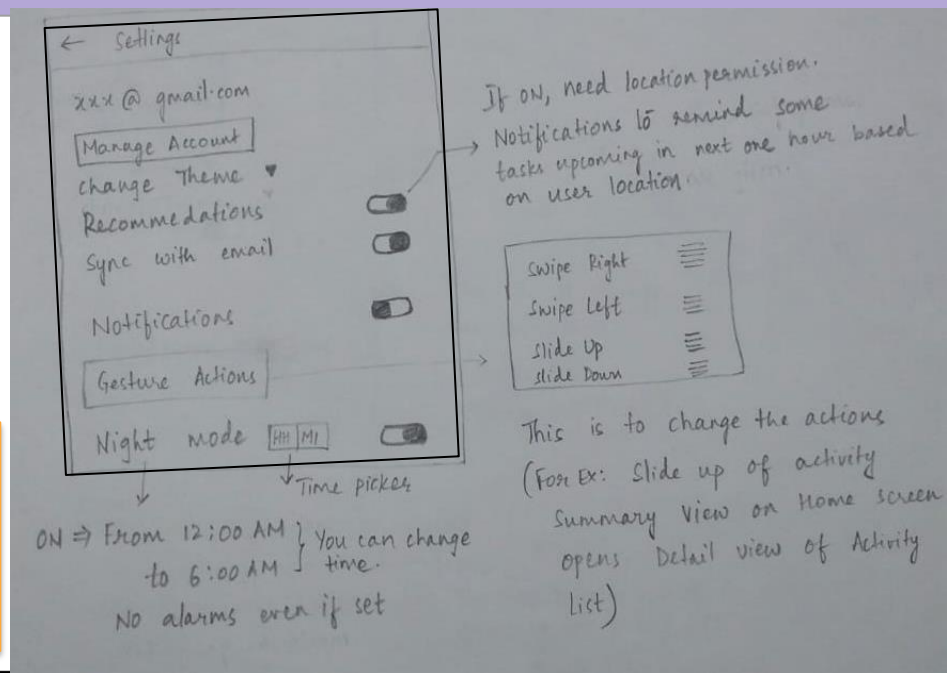 ← Settings
xxx @ gmail.com
Manage Account
change Theme ▼
Recommedations
Sync with email
Notifications
Gesture Actions
Night mode HH MI
Time picker
ON ⇒ From 12:00 AM } You can change
to 6:00 AM } time.
No alarms even if set
If ON, need location permission.
→ Notifications to remind some
tasks upcoming in next one hour based
on user location
Swipe Right
Swipe Left
Slide Up
slide Down
This is to change the actions
(For Ex: Slide up of activity
Summary view on Home screen
opens Detail view of Activity
List)